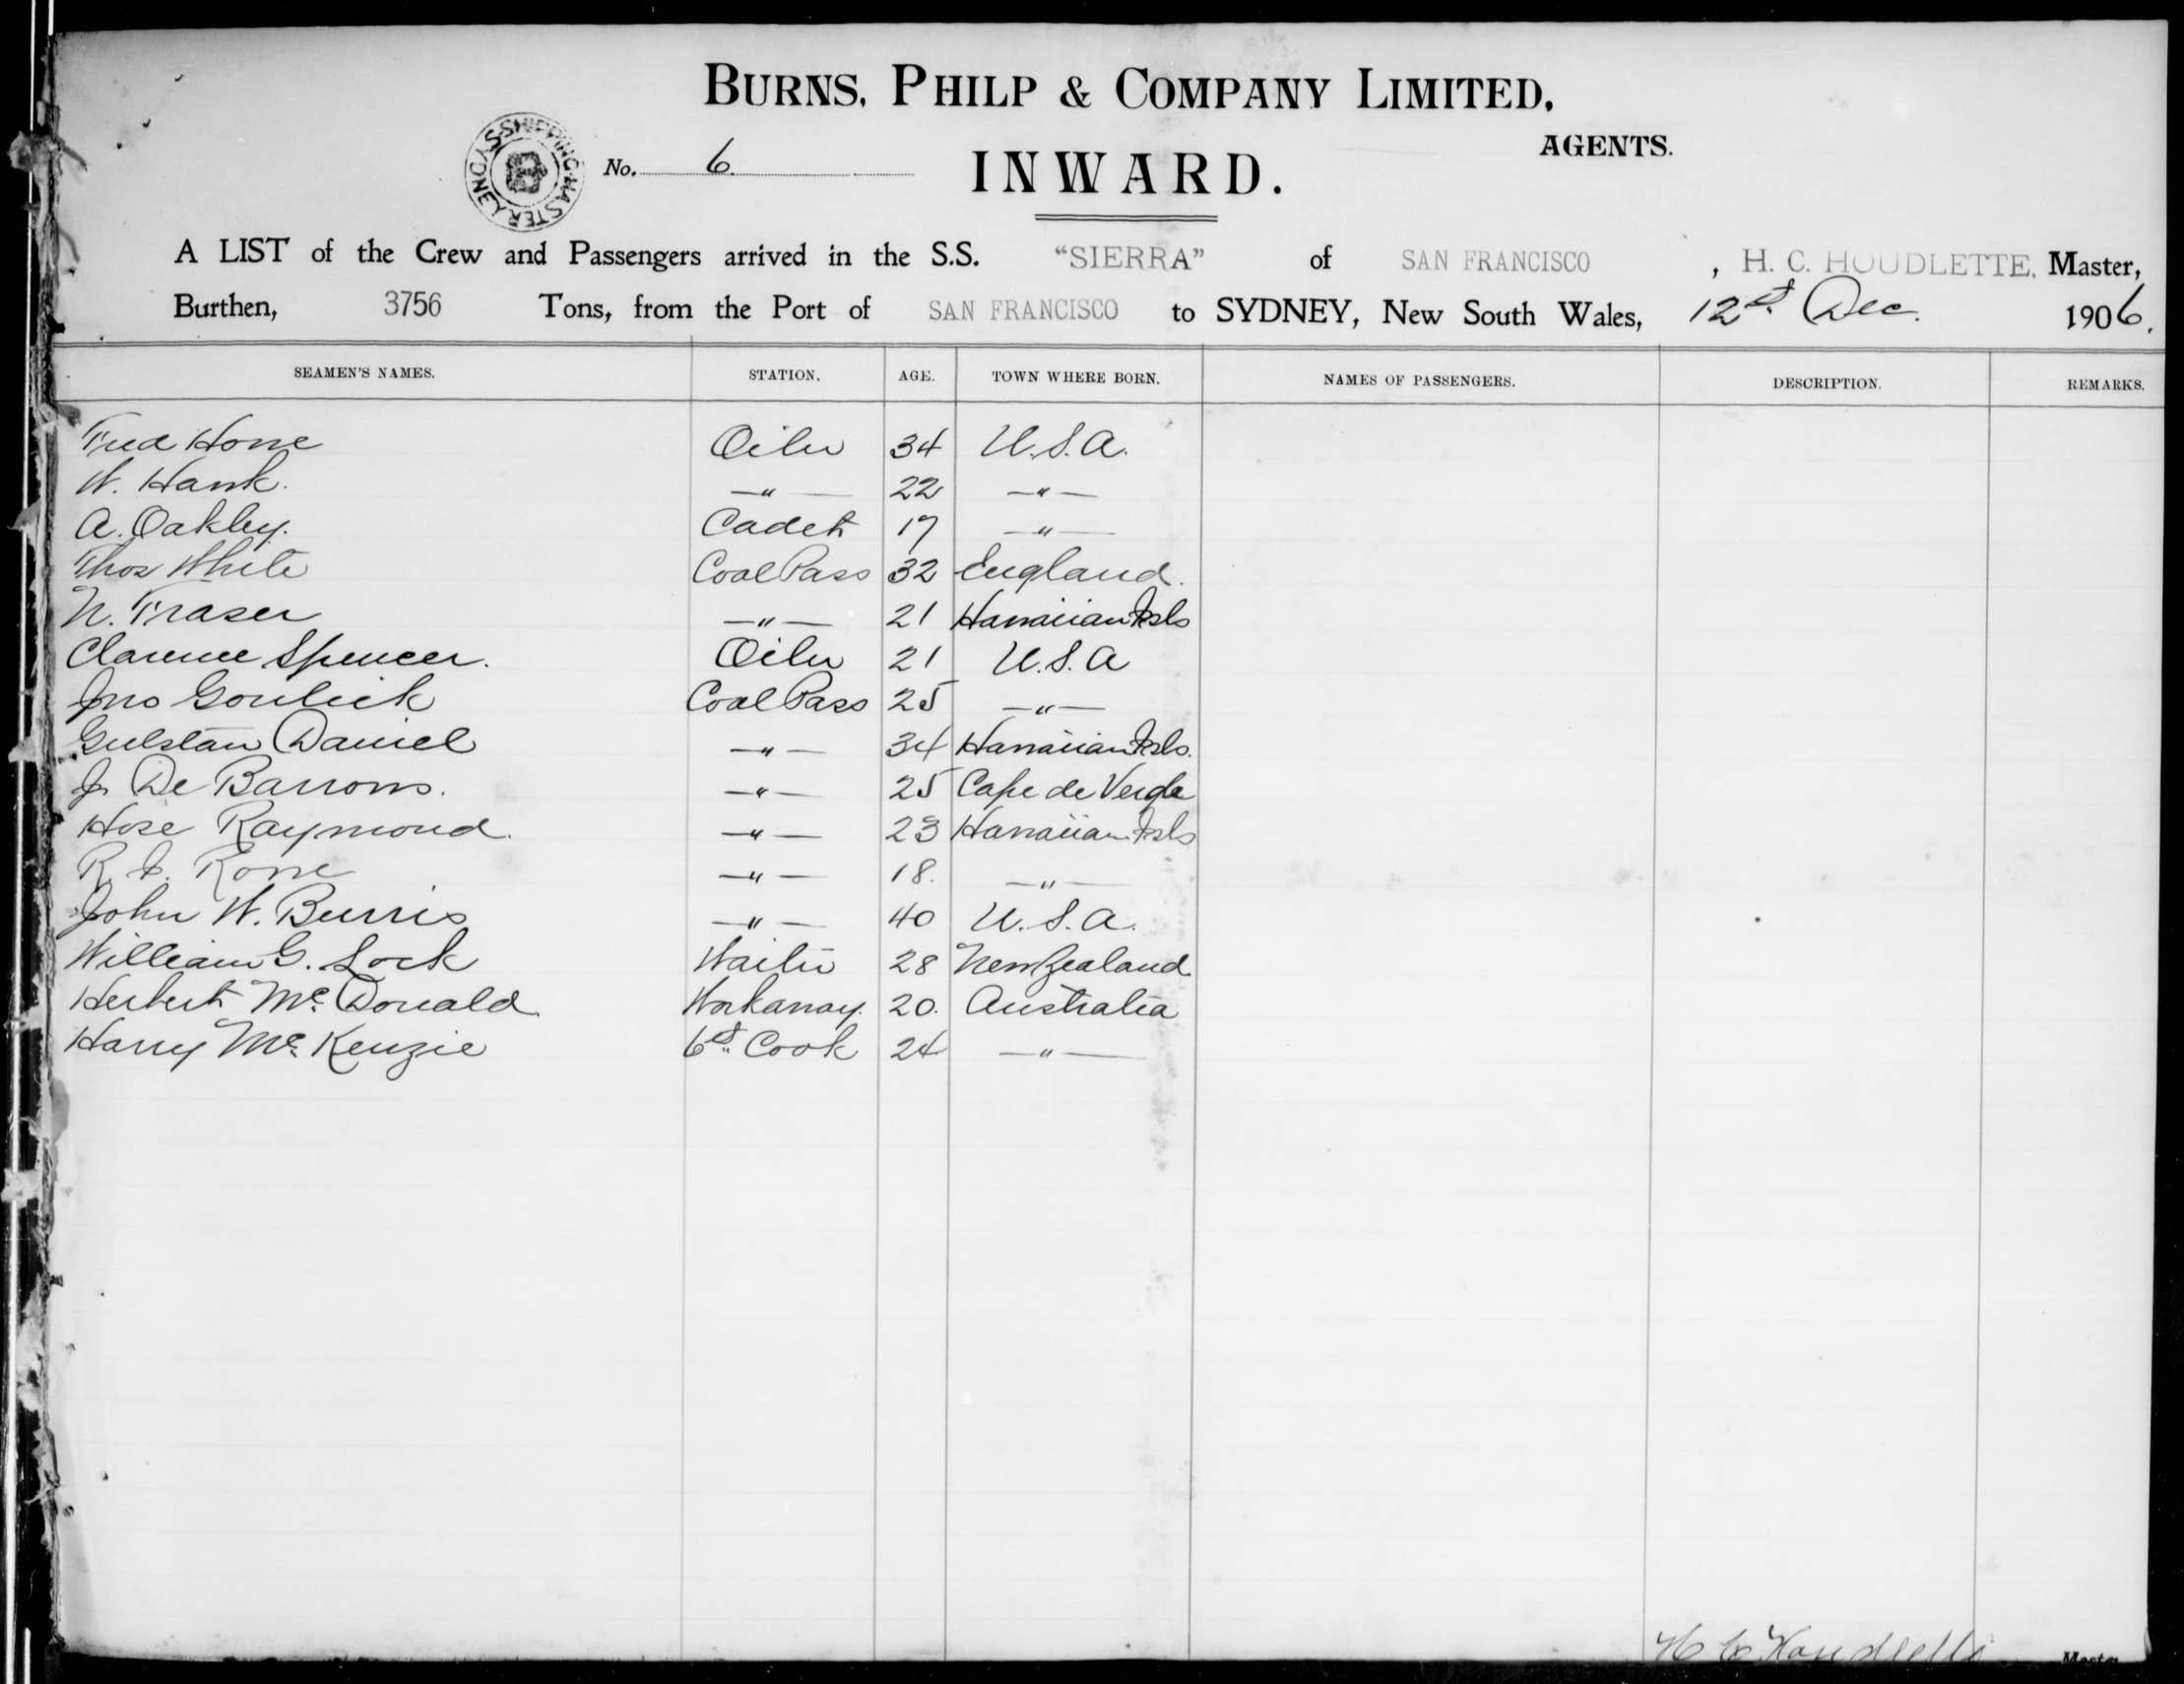 BURNS, PHILP & COMPANY LIMITED,
AGENTS.
SYDNEY SHIPPING MASTER
No. 6.
INWARD.
A LIST of the Crew and Passengers arrived in the S.S. "SIERRA" of SAN FRANCISCO, H. C. HOUDLETTE, Master,
Burthen, 3756 Tons, from the Port of SAN FRANCISCO to SYDNEY, New South Wales, 12th Dec. 1906.
SEAMEN'S NAMES. STATION. AGE. TOWN WHERE BORN. NAMES OF PASSENGERS. DESCRIPTION. REMARKS.
Fred Horne Oiler 34 U.S.A.
W. Hank. —"— 22 —"—
A. Oakley. Cadet 17 —"—
Thos White Coal Pass 32 England.
N. Fraser —"— 21 Hawaiian Isls
Clarence Spencer. Oiler 21 U.S.A
Jno Coal Pass 25 —"—
Gulstan Daniel —"— 34 Hawaiian Isls.
J. De Barrows. —"— 25 Cape de Verde
Hose Raymond. —"— 23 Hawaiian Isls
R. Rowe —"— 18. —"—
John W. Burris —"— 40 U.S.A.
William G. Lock Waiter 28 New Zealand
Herbert Mc. Donald Workaway. 20. Australia
Harry Mc. Kenzie 6th Cook 24 —"—
H C Houdlette Master